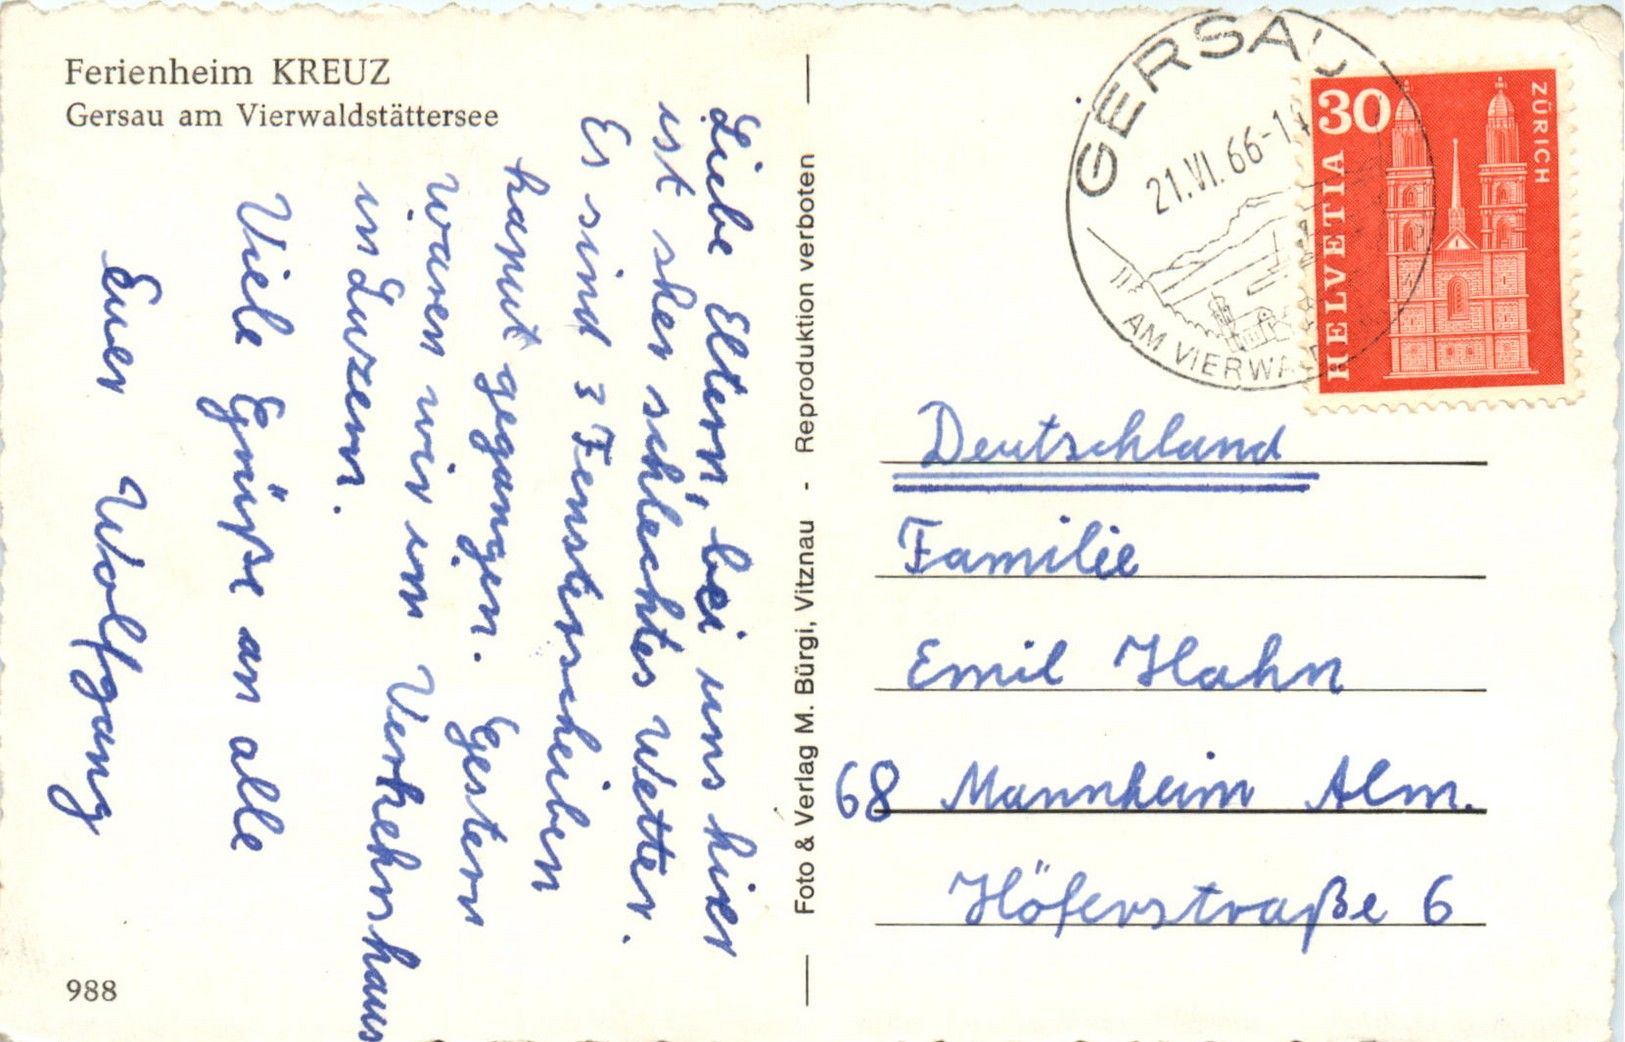 Ferienheim KREUZ
Gersau am Vierwaldstättersee
Liebe Eltern, bei uns hier
ist sher schlechtes Wetter.
Es sind 3 Fensterscheiben
kaputt gegangen. Gestern
waren wir im Verkehrshaus
in Luzern.
Viele Grüße an alle
Euer Wolfgang
988
Foto & Verlag M. Bürgi, Vitznau - Reproduktion verboten
GERSAU
21.VI.66-1
AM VIERWALD
30
HELVETIA
ZÜRICH
Deutschland
Familie
Emil Hahn
68 Mannheim Alm.
Höferstraße 6